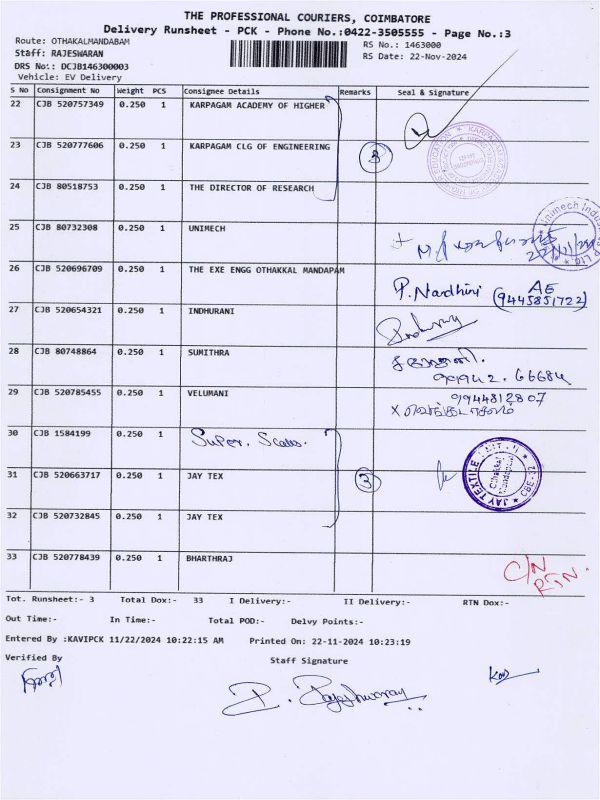 THE PROFESSIONAL COURIERS, COIMBATORE
Delivery Runsheet - PCK - Phone No.:0422-3505555 - Page No.:3
Route: OTHAKALMANDABAM
RS No.: 1463000
Staff: RAJESWARAN
RS Date: 22-Nov-2024
DRS No.: DCJB146300003
Vehicle: EV Delivery
S No Consignment No Weight PCS Consignee Details Remarks Seal & Signature
22 CJB 520757349 0.250 1 KARPAGAM ACADEMY OF HIGHER
23 CJB 520777606 0.250 1 KARPAGAM CLG OF ENGINEERING 3
24 CJB 80518753 0.250 1 THE DIRECTOR OF RESEARCH
25 CJB 80732308 0.250 1 UNIMECH
22/11/24
26 CJB 520696709 0.250 1 THE EXE ENGG OTHAKKAL MANDAPAM
P. Nandhini (AE 9445851722)
27 CJB 520654321 0.250 1 INDHURANI
28 CJB 80748864 0.250 1 SUMITHRA
99942. 66684
29 CJB 520785455 0.250 1 VELUMANI 9944812807
30 CJB 1584199 0.250 1 Super. Scales.
31 CJB 520663717 0.250 1 JAY TEX 3
JAY TEXTILE UNIT-II Othakkal Mandapam CBE-32
32 CJB 520732845 0.250 1 JAY TEX
33 CJB 520778439 0.250 1 BHARTHRAJ C/N RTN.
Tot. Runsheet:- 3 Total Dox:- 33 I Delivery:- II Delivery:- RTN Dox:-
Out Time:- In Time:- Total POD:- Delvy Points:-
Entered By :KAVIPCK 11/22/2024 10:22:15 AM Printed On: 22-11-2024 10:23:19
Verified By Staff Signature
P. Rajeshwaran